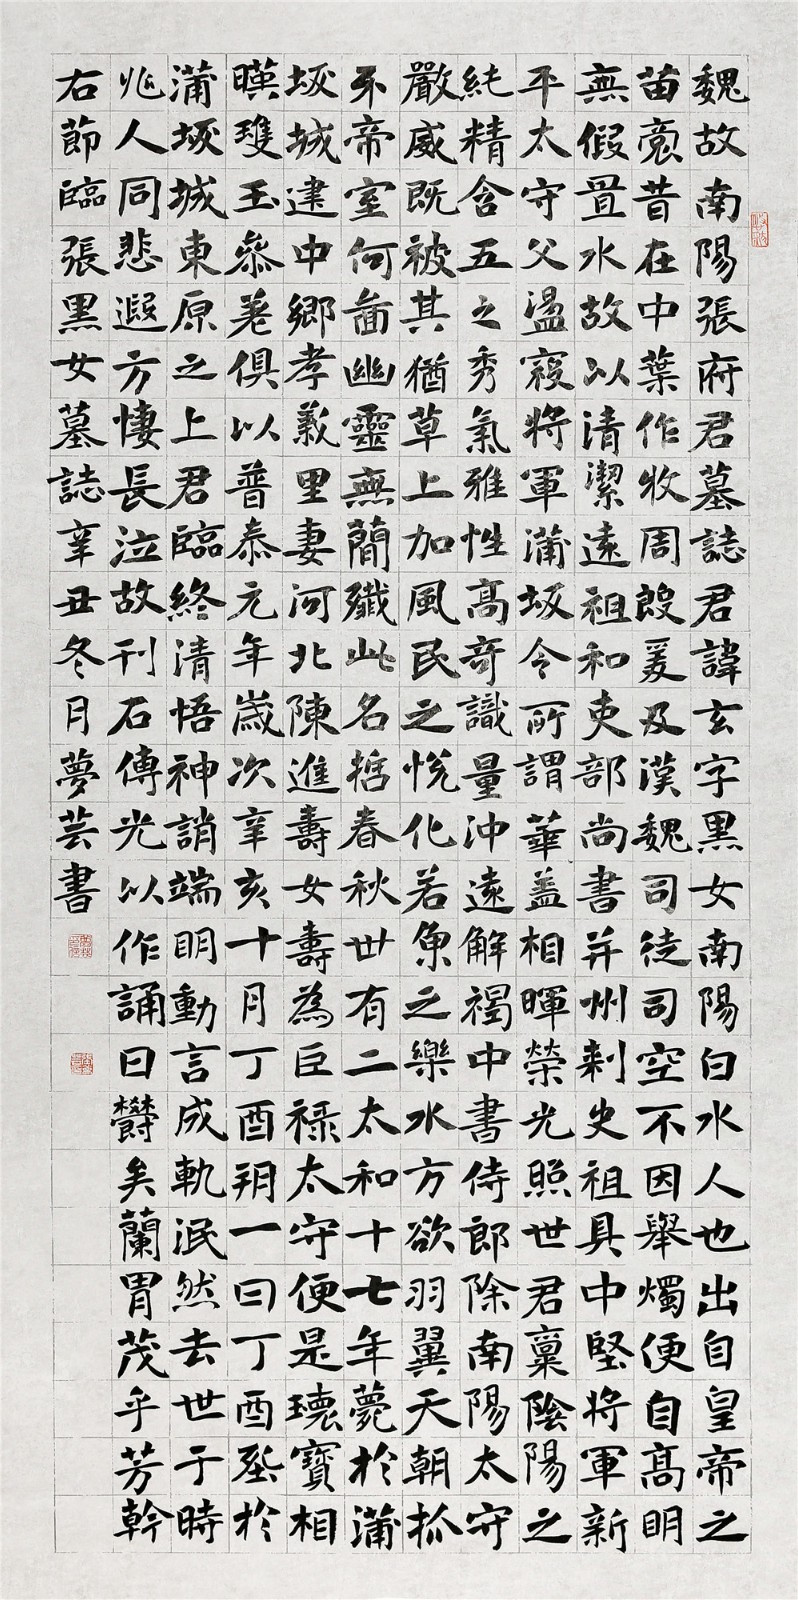 魏故南陽張府君墓誌君諱玄字黑女南陽白水人也出自皇帝之
苗裔昔在中葉作牧周殷爰及漢魏司徒司空不因舉燭便自高明
無假置水故以清潔遠祖和吏部尚書并州刺史祖具中堅將軍新
平太守父盪寇將軍蒲坂令所謂華蓋相暉榮光照世君稟陰陽之
純精含五之秀氣雅性高奇識量沖遠解褐中書侍郎除南陽太守
嚴威既被其猶草上加風民之悅化若魚之樂水方欲羽翼天朝抓
牙帝室何啚幽靈無簡殲此名哲春秋卅有二太和十七年薨於蒲
坂城建中鄉孝義里妻河北陳進壽女壽為巨祿太守便是瓌寶相
暎瓊玉參差俱以普泰元年歲次辛亥十月丁酉朔一日丁酉葬於
蒲坂城東原之上君臨終清悟神誚端明動言成軌泯然去世于時
兆人同悲遐方悽長泣故刊石傳光以作誦曰欝矣蘭胃茂乎芳幹
右節臨張黑女墓誌辛丑冬月夢芸書